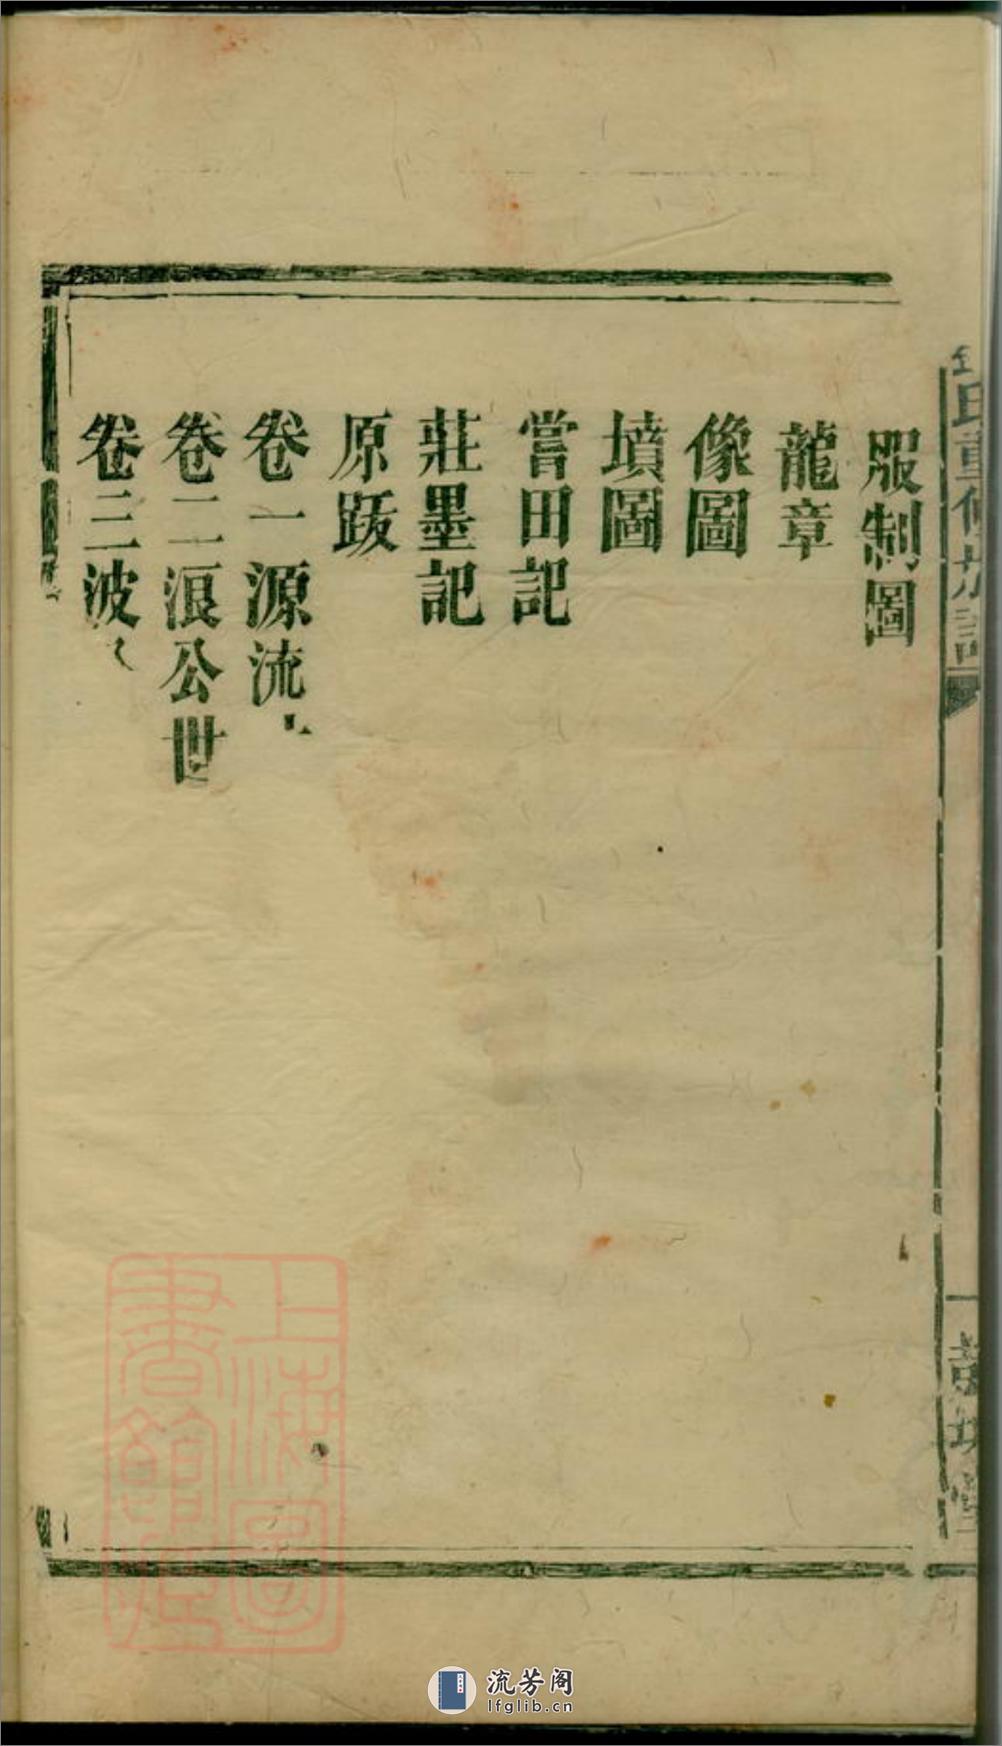 服制圖
龍章
像圖
墳圖
嘗田記
莊墨記
原跋
卷一源流
卷二浪公世
卷三波
氏重修族譜
一
堂
上海圖
書館藏
流芳阁
lfglib.cn